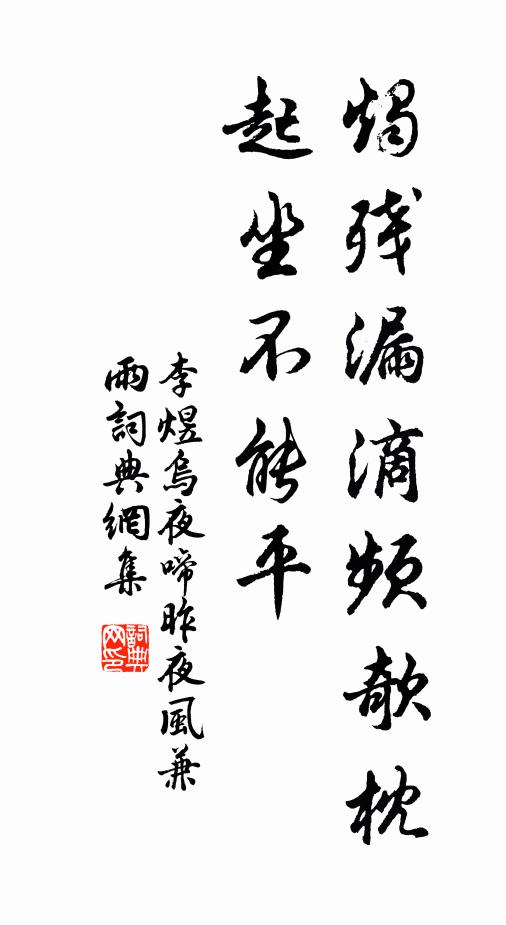 燭殘漏滴頻欹枕
起坐不能平
李煜烏夜啼昨夜風兼
雨詞典網集
詞典網印